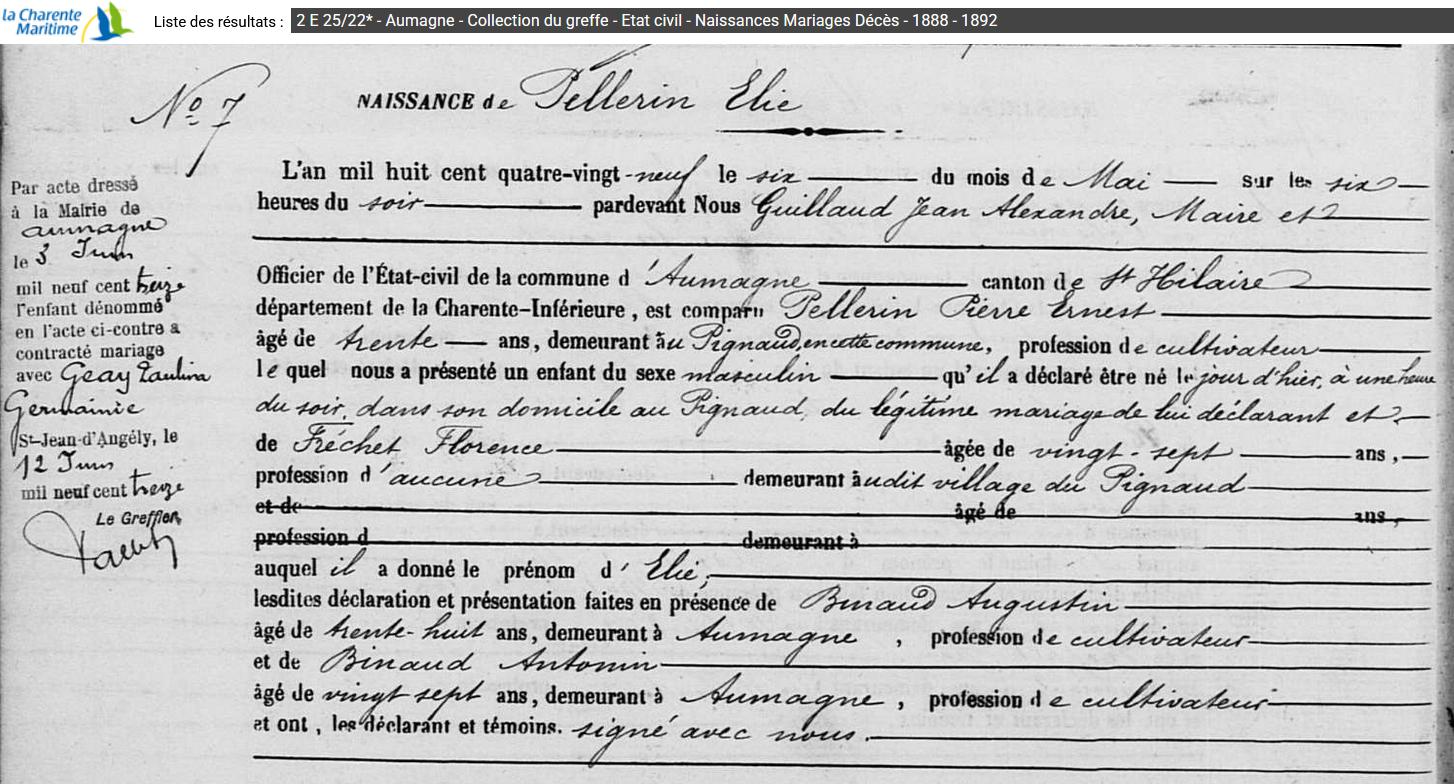 la Charente
Maritime
Liste des résultats : 2 E 25/22* - Aumagne - Collection du greffe - Etat civil - Naissances Mariages Décès - 1888 - 1892
No 7
NAISSANCE de Pellerin Elie
Par acte dressé
à la Mairie de
aumagne
le 3 Juin
mil neuf cent treize
l'enfant dénommé
en l'acte ci-contre a
contracté mariage
avec Geay Paulina
Germaine
St-Jean-d'Angély, le
12 Juin
mil neuf cent treize
Le Greffier,
L'an mil huit cent quatre-vingt-neuf le six du mois de Mai sur les six
heures du soir pardevant Nous Guillaud Jean Alexandre, Maire et
Officier de l'État-civil de la commune d'Aumagne canton de St Hilaire
département de la Charente-Inférieure, est comparu Pellerin Pierre Ernest
âgé de trente ans, demeurant au Pignaud, en cette commune, profession de cultivateur
lequel nous a présenté un enfant du sexe masculin qu'il a déclaré être né le jour d'hier, à une heure
du soir, dans son domicile au Pignaud, du légitime mariage de lui déclarant et
de Fréchet Florence âgée de vingt-sept ans,
profession d'aucune demeurant audit village du Pignaud
et de âgé de ans,
profession d demeurant à
auquel il a donné le prénom d'Elie,
lesdites déclaration et présentation faites en présence de Binaud Augustin
âgé de trente-huit ans, demeurant à Aumagne, profession de cultivateur
et de Binaud Antonin
âgé de vingt sept ans, demeurant à Aumagne, profession de cultivateur
et ont, les déclarant et témoins. signé avec nous.